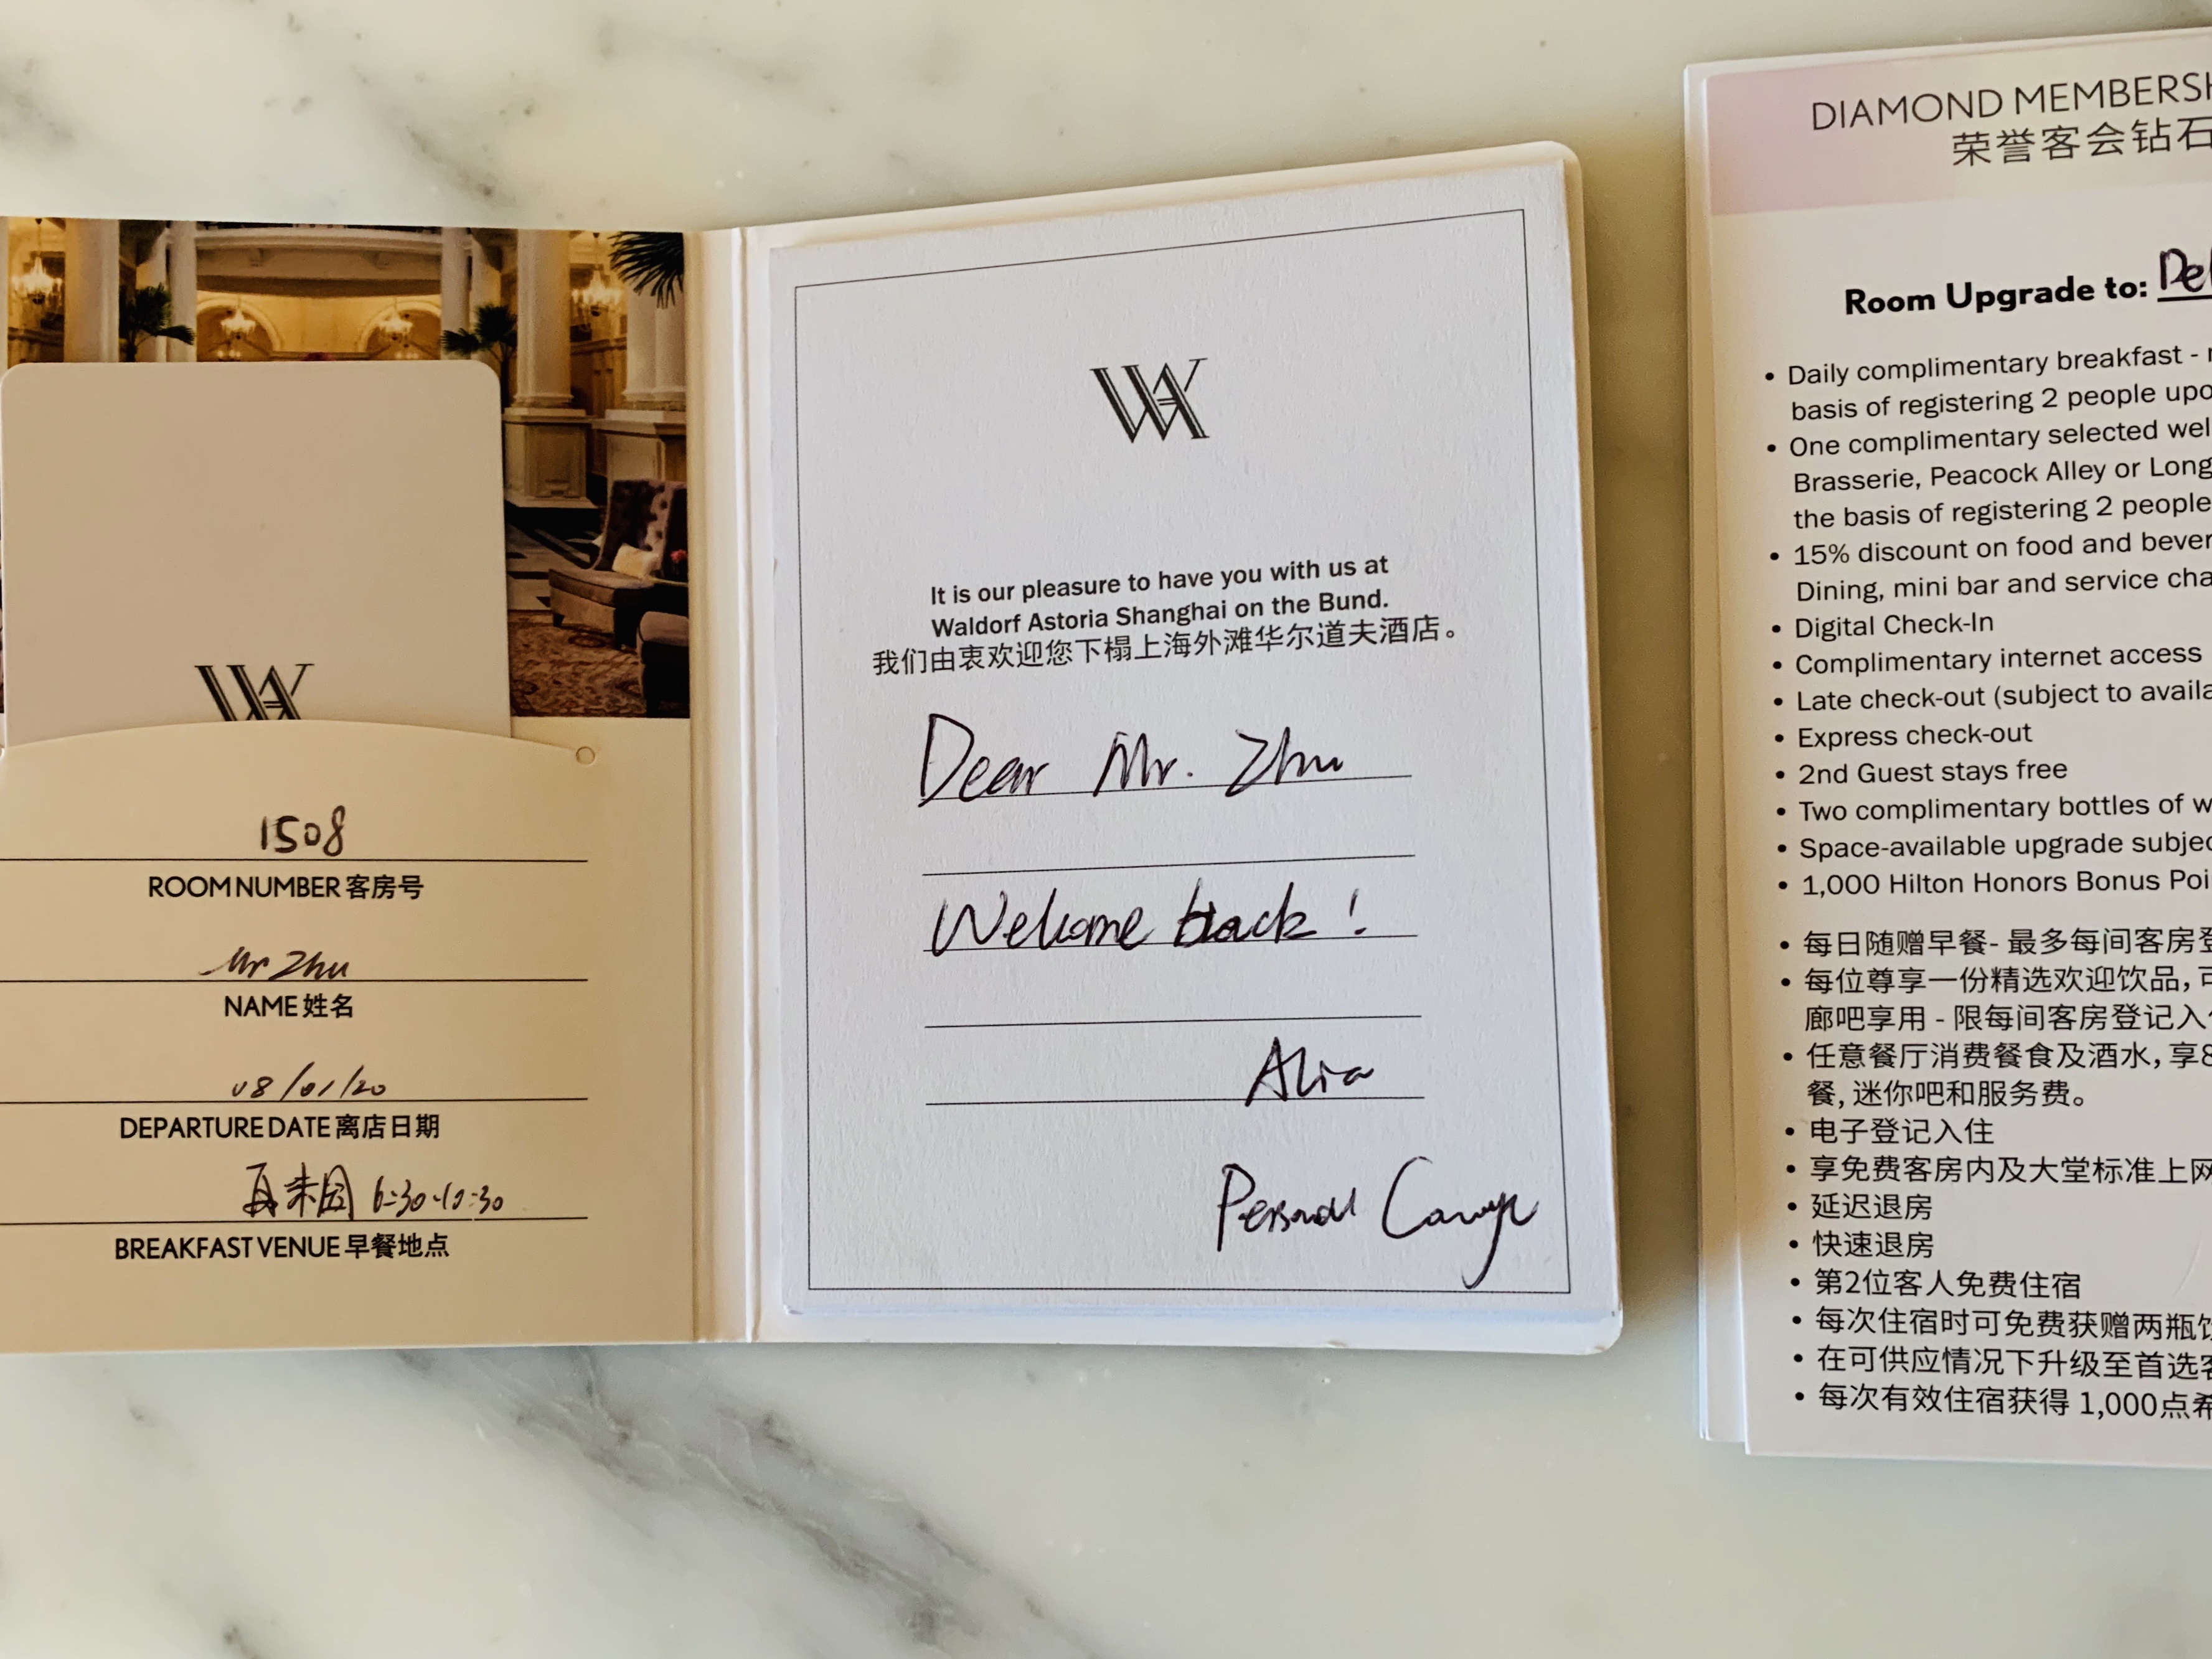 1508
ROOM NUMBER 客房号
Mr Zhu
NAME 姓名
08/01/20
DEPARTURE DATE 离店日期
6:30-10:30
BREAKFAST VENUE 早餐地点
WA
It is our pleasure to have you with us at
Waldorf Astoria Shanghai on the Bund.
我们由衷欢迎您下榻上海外滩华尔道夫酒店。
Dear Mr. Zhu
Welcome back!
Personal
DIAMOND MEMBERSH
荣誉客会钻石
Room Upgrade to: Del
• Daily complimentary breakfast -
basis of registering 2 people upo
• One complimentary selected wel
Brasserie, Peacock Alley or Long
the basis of registering 2 people
• 15% discount on food and bever
Dining, mini bar and service cha
• Digital Check-In
• Complimentary internet access
• Late check-out (subject to availa
• Express check-out
• 2nd Guest stays free
• Two complimentary bottles of w
• Space-available upgrade subjec
• 1,000 Hilton Honors Bonus Poi
• 每日随赠早餐- 最多每间客房登
• 每位尊享一份精选欢迎饮品, 可
廊吧享用 - 限每间客房登记入住
• 任意餐厅消费餐食及酒水, 享8
餐, 迷你吧和服务费。
• 电子登记入住
• 享免费客房内及大堂标准上网
• 延迟退房
• 快速退房
• 第2位客人免费住宿
• 每次住宿时可免费获赠两瓶饮
• 在可供应情况下升级至首选客
• 每次有效住宿获得 1,000点希